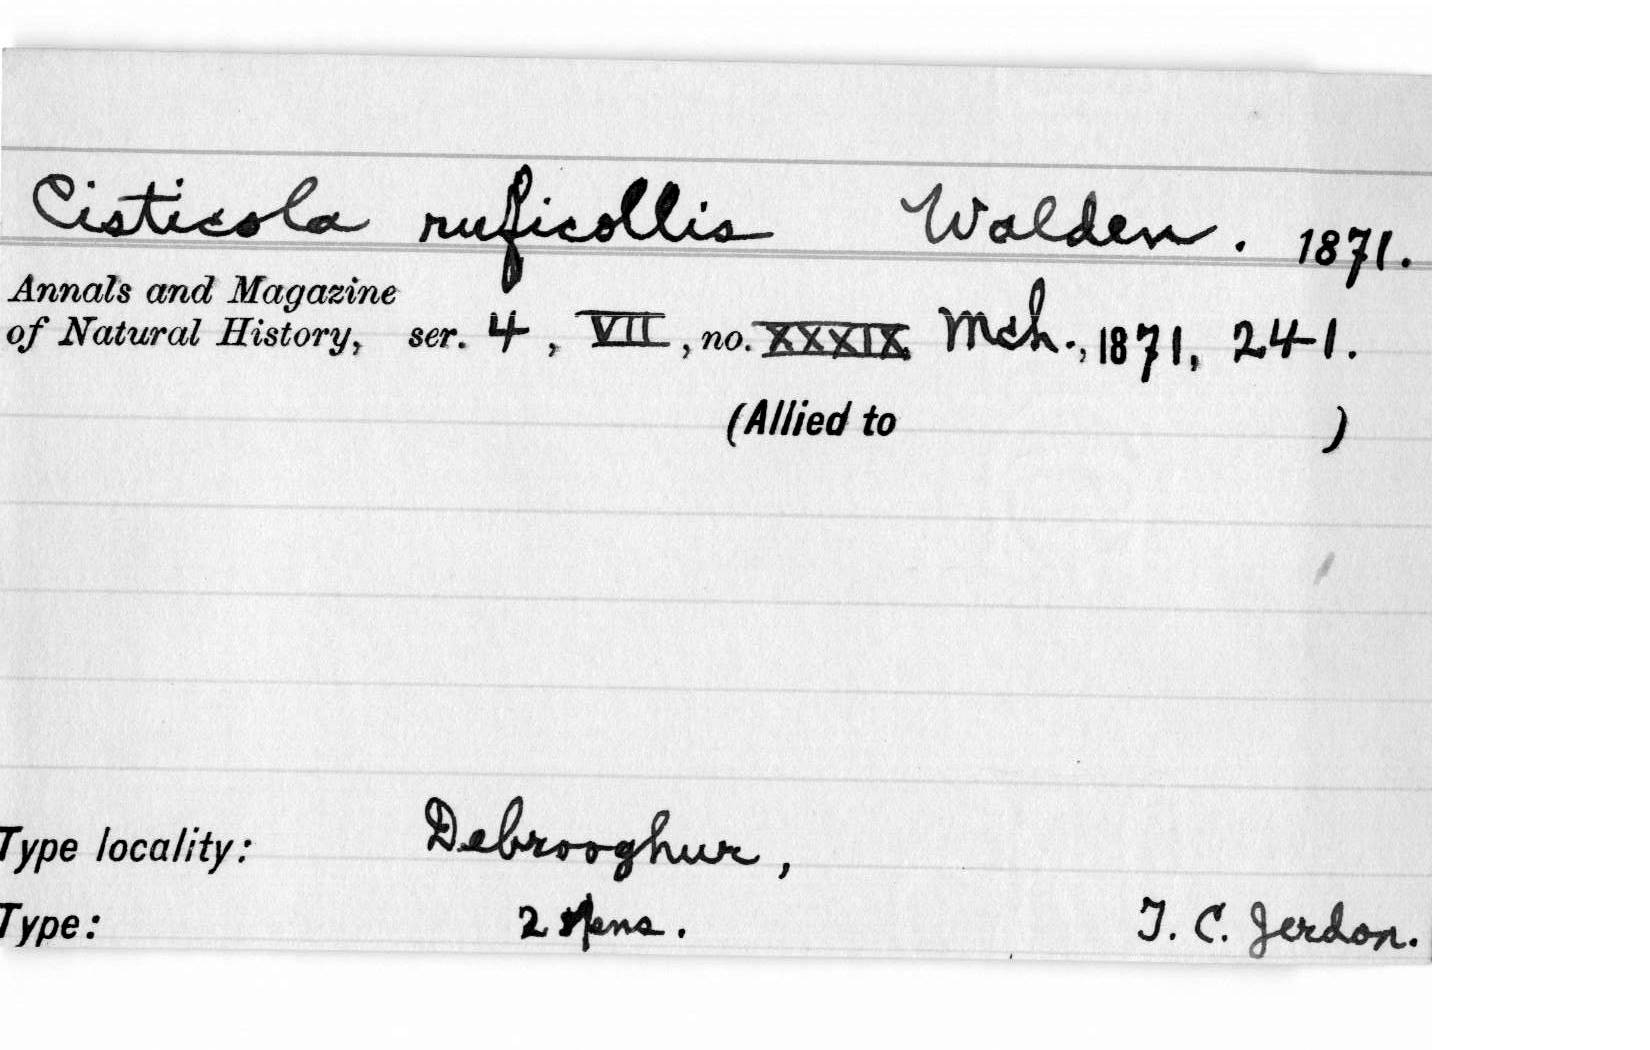 Cisticola ruficollis Walden. 1871.
Annals and Magazine
of Natural History, ser. 4, VII, no. XXXIX, Mch., 1871, 241.
(Allied to )
Type locality: Debrooghur,
Type: 2 spens. T. C. Jerdon.